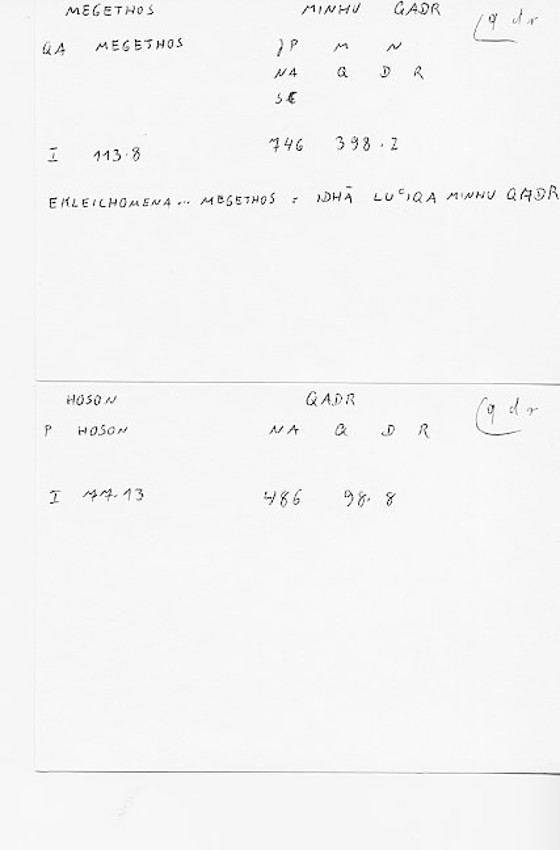 MEGETHOS MINHU QADR q d r
QA MEGETHOS JP M N
NA Q D R
SE
I 113.8 746 398.2
EKLEICHOMENA... MEGETHOS : IDHĀ LUᶜIQA MINHU QADR
HOSON QADR q d r
P HOSON NA Q D R
I 77.13 486 98.8